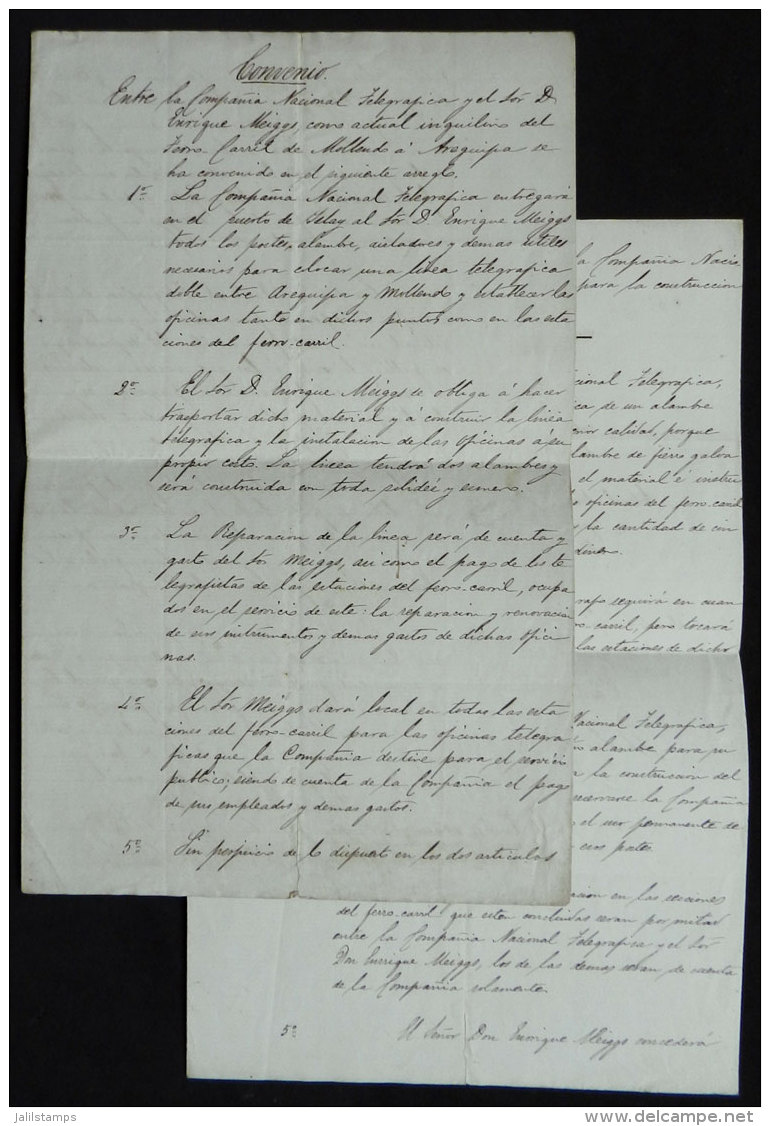 Convenio.
Entre la Compañia Nacional Telegrafica y el Sor D.
Enrique Meiggs, como actual inquilino del
Ferro Carril de Mollendo á Arequipa se
ha convenido en el siguiente arreglo.
1º La Compañia Nacional Telegrafica entregará
en el puerto de Islay al Sor D. Enrique Meiggs
todos los postes, alambre, aisladores y demas utiles
necesarios para colocar una linea telegrafica
doble entre Arequipa y Mollendo y establecer las
oficinas tanto en dichos puntos como en las esta
ciones del ferro-carril.
2º El Sor D. Enrique Meiggs se obliga á hacer
trasportar dicho material y á construir la linea
telegrafica y la instalacion de las oficinas á su
propio costo. La linea tendrá dos alambres y
será construida con toda solidéz y esmero.
3º La Reparacion de la linea será de cuenta y
gasto del Sor Meiggs, asi como el pago de los te
legrafistas de las estaciones del ferro-carril, ocupa
dos en el servicio de este. la reparacion y renovacion
de sus instrumentos y demas gastos de dichas ofici
nas.
4º El Sor Meiggs dará local en todas las esta
ciones del ferro-carril para las oficinas telegra
ficas que la Compañia destine para el servicio
publico; siendo de cuenta de la Compañia el pago
de sus empleados y demas gastos.
5º Sin perjuicio de lo dispuesto en los dos articulos
la Compañia Nacio
para la construccion
cional Telegrafica,
ca de un alambre
calidad, porque
alambre de fierro galva
el material é instru
oficinas del ferro-carril
la cantidad de cin
dinero.
grafo seguirá en cuan
ro-carril, pero tocará
las estaciones de dicho
Nacional Telegrafica,
alambre para su
la construccion del
reservarse la Compañia
el uso permanente de
esos postes
racion en las secciones
del ferro-carril que esten concluidas seran por mitad
entre la Compañia Nacional Telegrafica y el Sor
Don Enrrique Meiggs, los de las demas seran de cuenta
de la Compañia solamente.
5º El Señor Don Enrique Meiggs concederá
jalilstamps
delcampe.net